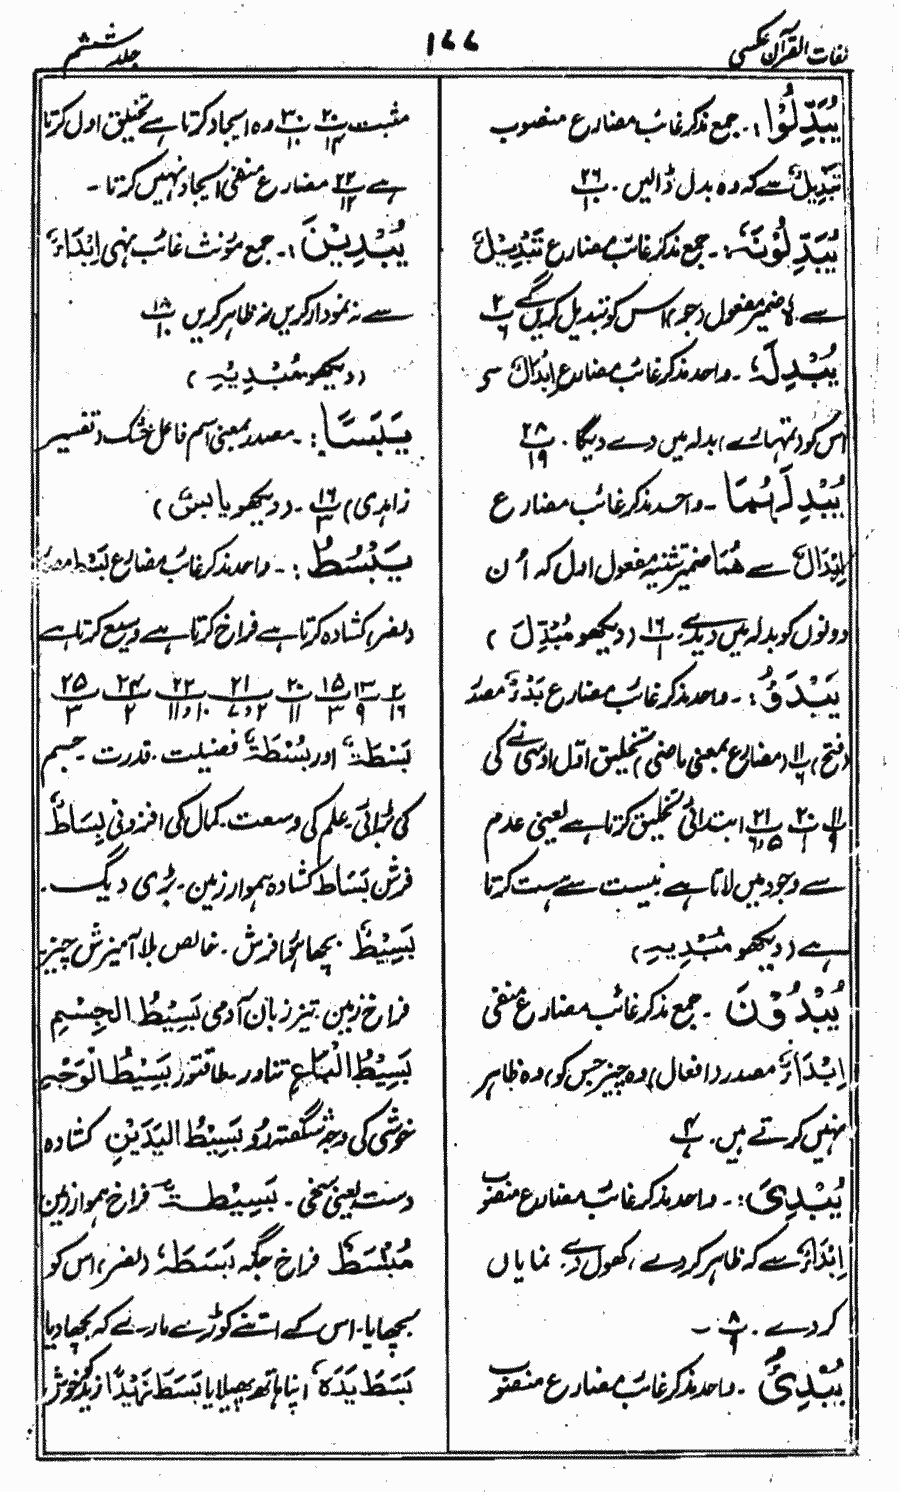 لغات القرآن عکسی
۱۷۷
جلد ششم
یُبَدِّلُوْا :- جمع مذکر غائب مضارع منصوب
تَبْدِیْلٌ سے کہ وہ بدل ڈالیں - پ۲۶/۱
یُبَدِّلُوْنَہٗ :- جمع مذکر غائب مضارع تَبْدِیْلٌ
سے ہٗ ضمیر مفعول (جو) اس کو تبدیل کریں گے پ۲/۶
یُبْدِلَہٗ - واحد مذکر غائب مضارع اِبْدَالٌ سے
اس کو (تمہارے) بدلہ میں دے دیگا - پ۲۸/۱۹
یُبْدِلَہُمَا - واحد مذکر غائب مضارع
اِبْدَالٌ سے ھُمَا ضمیر تثنیہ مفعول اول کہ اُن
دونوں کو بدلہ میں دیدے پ۱۶/۱ (دیکھو مُبَدِّلَ)
یَبْدَؤُ :- واحد مذکر غائب مضارع بَدْءٌ مصدر
(فتح) پ۱۱/۶ (مضارع بمعنی ماضی) تخلیق اول اوسی نے کی
پ۱۱/۹ پ۲۰/۱ پ۲۱/۶،۵ ابتدائی تخلیق کرتا ہے یعنی عدم
سے وجود میں لاتا ہے نیست سے ہست کرتا
ہے (دیکھو مُبْدِیْہِ)
یُبْدُوْنَ - جمع مذکر غائب مضارع منفی
اِبْدَاءٌ مصدر (افعال) وہ چیز جس کو) وہ ظاہر
نہیں کرتے ہیں - پ۴/۷
یُبْدِیَ :- واحد مذکر غائب مضارع منصوب
اِبْدَاءٌ سے کہ ظاہر کر دے، کھول دے - نمایاں
کر دے - پ۸/۹ -
یُبْدِئُ - واحد مذکر غائب مضارع منصوب
مثبت پ۲۰/۱۴ پ۳۰/۱۰ وہ ایجاد کرتا ہے تخلیق اول کرتا
ہے پ۲۲/۱۲ مضارع منفی ایجاد نہیں کرتا -
یُبْدِیْنَ :- جمع مؤنث غائب نہی اِبْدَاءٌ
سے نہ نمودار کریں نہ ظاہر کریں پ۱۸/۱۰
(دیکھو مُبْدِیْہِ)
یَبَسًا :- مصدر بمعنی اسم فاعل خشک (تفسیر
زاہدی) پ۱۶/۳ - (دیکھو یابِسٌ)
یَبْسُطُ :- واحد مذکر غائب مضارع بَسْطٌ مصدر
(نصر) کشادہ کرتا ہے فراخ کرتا ہے وسیع کرتا ہے
۲/۱۶ ۱۳/۹ ۱۵/۳ ۲۰/۱۱ ۲۱/۷،۲ ۲۲/۱۱،۱۰ ۲۴/۲ ۲۵/۳
بَسْطَۃٌ اور بُسْطَۃٌ فضیلت - قدرت - جسم
کی بڑائی - علم کی وسعت - کمال کی افزونی بِسَاطٌ
فرش بَسَاط کشادہ ہموار زمین - بڑی دیگ -
بَسِیْطٌ بچھا ہوا فرش - خالص بلا آمیزش چیز -
فراخ زمین - تیز زبان آدمی بَسِیْطُ الجِسْمِ
بَسِیْطُ الْبَاعِ تناور - طاقتور بَسِیْطُ الْوَجْہِ
خوشی کی وجہ سے شگفتہ رُو بَسِیْطُ الْیَدَیْنِ کشادہ
دست یعنی سخی - بَسِیْطَۃٌ فراخ ہموار زمین
مُبْسَطٌ فراخ جگہ بَسَطَہٗ (نصر) اس کو
بچھایا - اس کے اتنے کوڑے مارے کہ بچھا دیا
بَسَطَ یَدَہٗ اپنا ہاتھ پھیلایا بَسَطَ زَیْدًا زید کو خوش